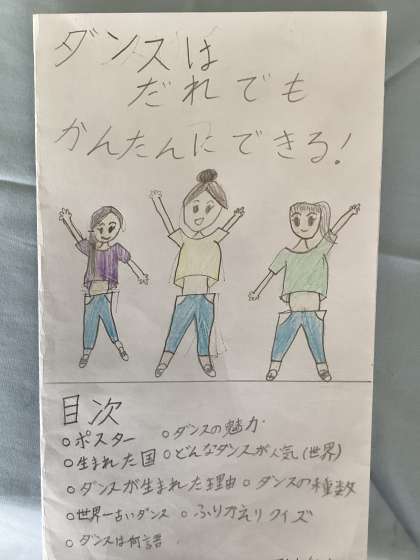 ダンスは
だれでも
かんたんにできる!
目次
○ポスター ○ダンスの魅力
○生まれた国 ○どんなダンスが人気(世界)
○ダンスが生まれた理由 ○ダンスの種数
○世界一古いダンス ○ふりかえりクイズ
○ダンスは何語